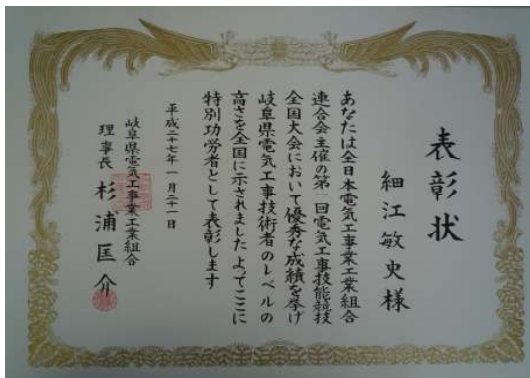 表彰状
細江敏史様
あなたは全日本電気工事業工業組合
連合会主催の第一回電気工事技能競技
全国大会において優秀な成績を挙げ
岐阜県電気工事技術者のレベルの
高さを全国に示されましたよってここに
特別功労者として表彰します
平成二十七年一月二十一日
岐阜県電気工事業工業組合
理事長 杉浦匡介